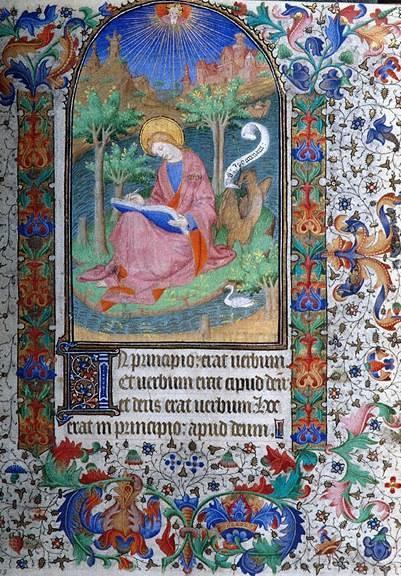 In principio erat uerbum
Et uerbum erat apud deu
et deus erat uerbum. Hoc
erat in principio: apud deum.